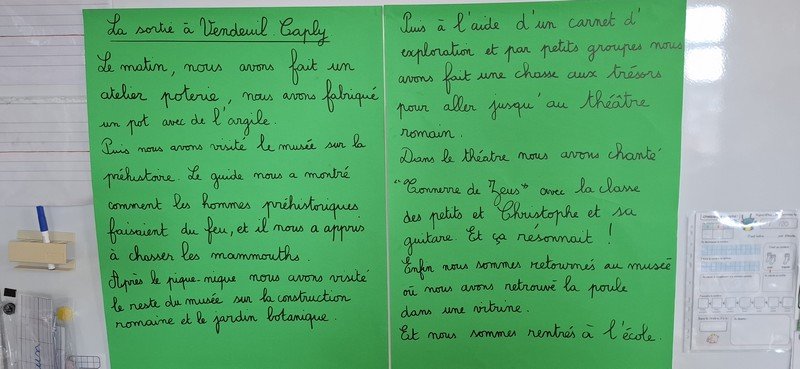 La sortie à Vendeuil-Caply
Le matin, nous avons fait un
atelier poterie, nous avons fabriqué
un pot avec de l'argile.
Puis nous avons visité le musée sur la
préhistoire. Le guide nous a montré
comment les hommes préhistoriques
faisaient du feu, et il nous a appris
à chasser les mammouths.
Après le pique-nique nous avons visité
le reste du musée sur la construction
romaine et le jardin botanique.
Puis à l'aide d'un carnet d'
exploration et par petits groupes nous
avons fait une chasse aux trésors
pour aller jusqu'au théâtre
romain.
Dans le théâtre nous avons chanté
"Tonnerre de Zeus" avec la classe
des petits et Christophe et sa
guitare. Et ça résonnait !
Enfin nous sommes retournés au musée
où nous avons retrouvé la poule
dans une vitrine.
Et nous sommes rentrés à l'école.